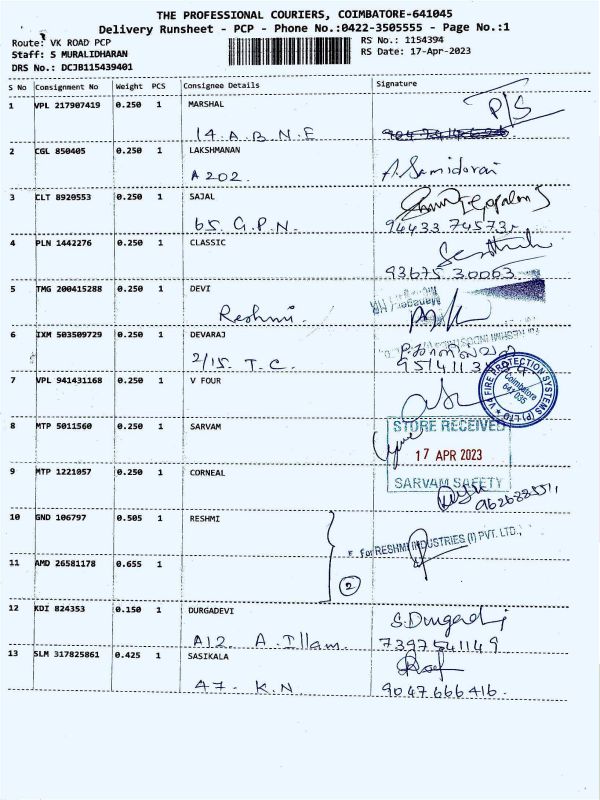 THE PROFESSIONAL COURIERS, COIMBATORE-641045
Delivery Runsheet - PCP - Phone No.:0422-3505555 - Page No.:1
Route: VK ROAD PCP RS No.: 1154394
Staff: S MURALIDHARAN RS Date: 17-Apr-2023
DRS No.: DCJB115439401
S No Consignment No Weight PCS Consignee Details Signature
1 VPL 217907419 0.250 1 MARSHAL P/S
14. A. B. N. E
2 CGL 850405 0.250 1 LAKSHMANAN
A 202. A. Samidorai
3 CLT 8920553 0.250 1 SAJAL
65. G. P. N. 94433 74573
4 PLN 1442276 0.250 1 CLASSIC
93675 30063
5 TMG 200415288 0.250 1 DEVI
Reshmi. Manager HR
6 IXM 503509729 0.250 1 DEVARAJ
2/15 T. C.
7 VPL 941431168 0.250 1 V FOUR
V4 FIRE PROTECTION SYSTEMS (P) LTD
Coimbatore
641 035
8 MTP 5011560 0.250 1 SARVAM STORE RECEIVED
17 APR 2023
9 MTP 1221057 0.250 1 CORNEAL SARVAM SAFETY
10 GND 106797 0.505 1 RESHMI
For RESHMI INDUSTRIES (I) PVT. LTD.,
11 AMD 26581178 0.655 1
2
12 KDI 824353 0.150 1 DURGADEVI S. Durgadevi
A12. A. Illam. 7397541149
13 SLM 317825861 0.425 1 SASIKALA
47. K. N. 9047666416.